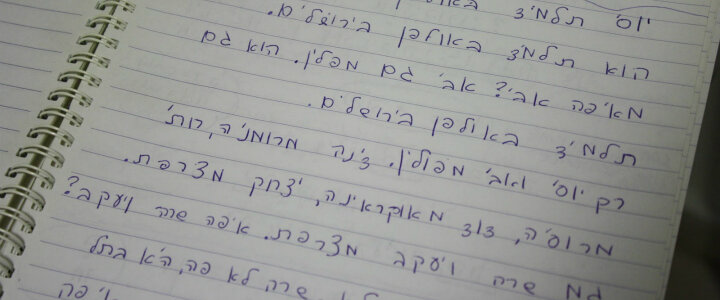 יוסי תלמיד באולפן
הוא תלמיד באולפן בירושלים.
מאיפה אבי? אבי גם מפולין. הוא גם
תלמיד באולפן בירושלים.
רק יוסי ואבי מפולין. דינה מרומניה, רותי
מרוסיה, דוד מאוקראינה, יצחק מצרפת.
גם שרה ויעקב מצרפת. איפה שרה ויעקב?
שרה לא פה, היא בתל